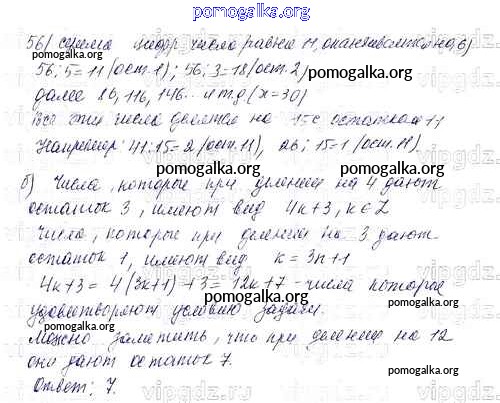 pomogalka.org
56/ сумма цифр числа равна 11, оканчивается на 6)
56:5=11 (ост.1); 56:3=18 (ост.2)
далее 86, 116, 146... и т.д (x=30)
Все эти числа делятся на 15 с остатком 11
Например: 41:15=2 (ост.11), 26:15=1 (ост.11).
pomogalka.org
pomogalka.org
б) Числа, которые при делении на 4 дают
остаток 3, имеют вид 4k+3, k∈Z
pomogalka.org
Числа, которые при делении на 3 дают
остаток 1, имеют вид k=3n+1
4k+3=4(3k+1)+3=12k+7 - числа которые
удовлетворяют условию задачи.
pomogalka.org
Можно заметить, что при делении на 12
они дают остаток 7.
pomogalka.org
Ответ: 7.
pomogalka.org
vipgdz.ru